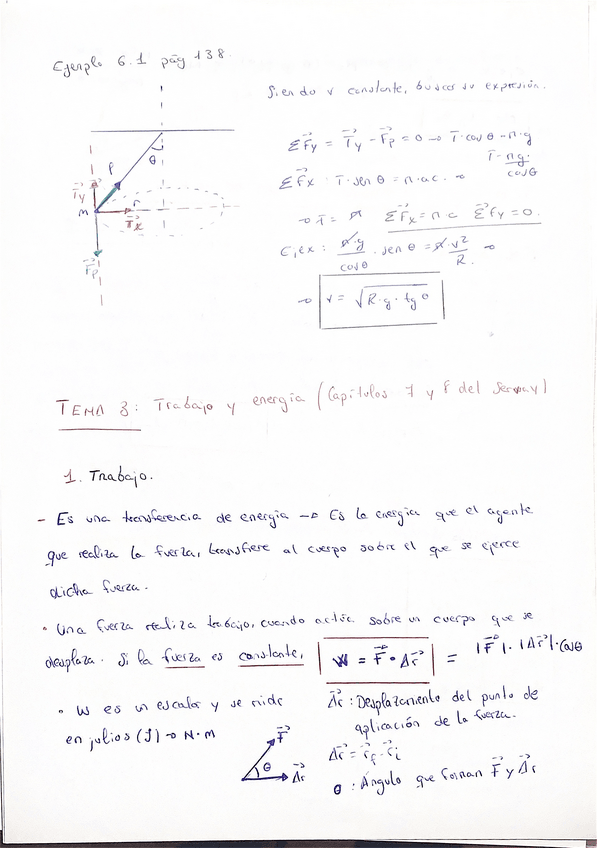 Ejemplo 6.1 pág 138.
Siendo v constante, buscar su expresión.
ΣF⃗y = T⃗y - F⃗p = 0 → T·cosθ = m·g
T = m·g / cosθ
ΣF⃗x = T·senθ = m·ac →
→ T =
ΣF⃗x = m·c ΣF⃗y = 0.
m·g / cosθ · senθ = m·v² / R →
→ v = √R·g·tgθ
θ
T⃗y
r
M
T⃗x
F⃗p
TEMA 3: Trabajo y energía (Capítulos 7 y 8 del Serway)
1. Trabajo.
- Es una transferencia de energía → Es la energía que el agente
que realiza la fuerza, transfiere al cuerpo sobre el que se ejerce
dicha fuerza.
• Una fuerza realiza trabajo, cuando actúa sobre un cuerpo que se
desplaza. Si la fuerza es constante, W = F⃗ · Δr⃗ = |F⃗|·|Δr⃗|·cosθ
• W es un escalar y se mide
en julios (J) → N·m
F⃗
θ
Δr⃗
Δr⃗: Desplazamiento del punto de
aplicación de la fuerza.
Δr⃗ = r⃗f - r⃗i
θ: Ángulo que forman F⃗ y Δr⃗